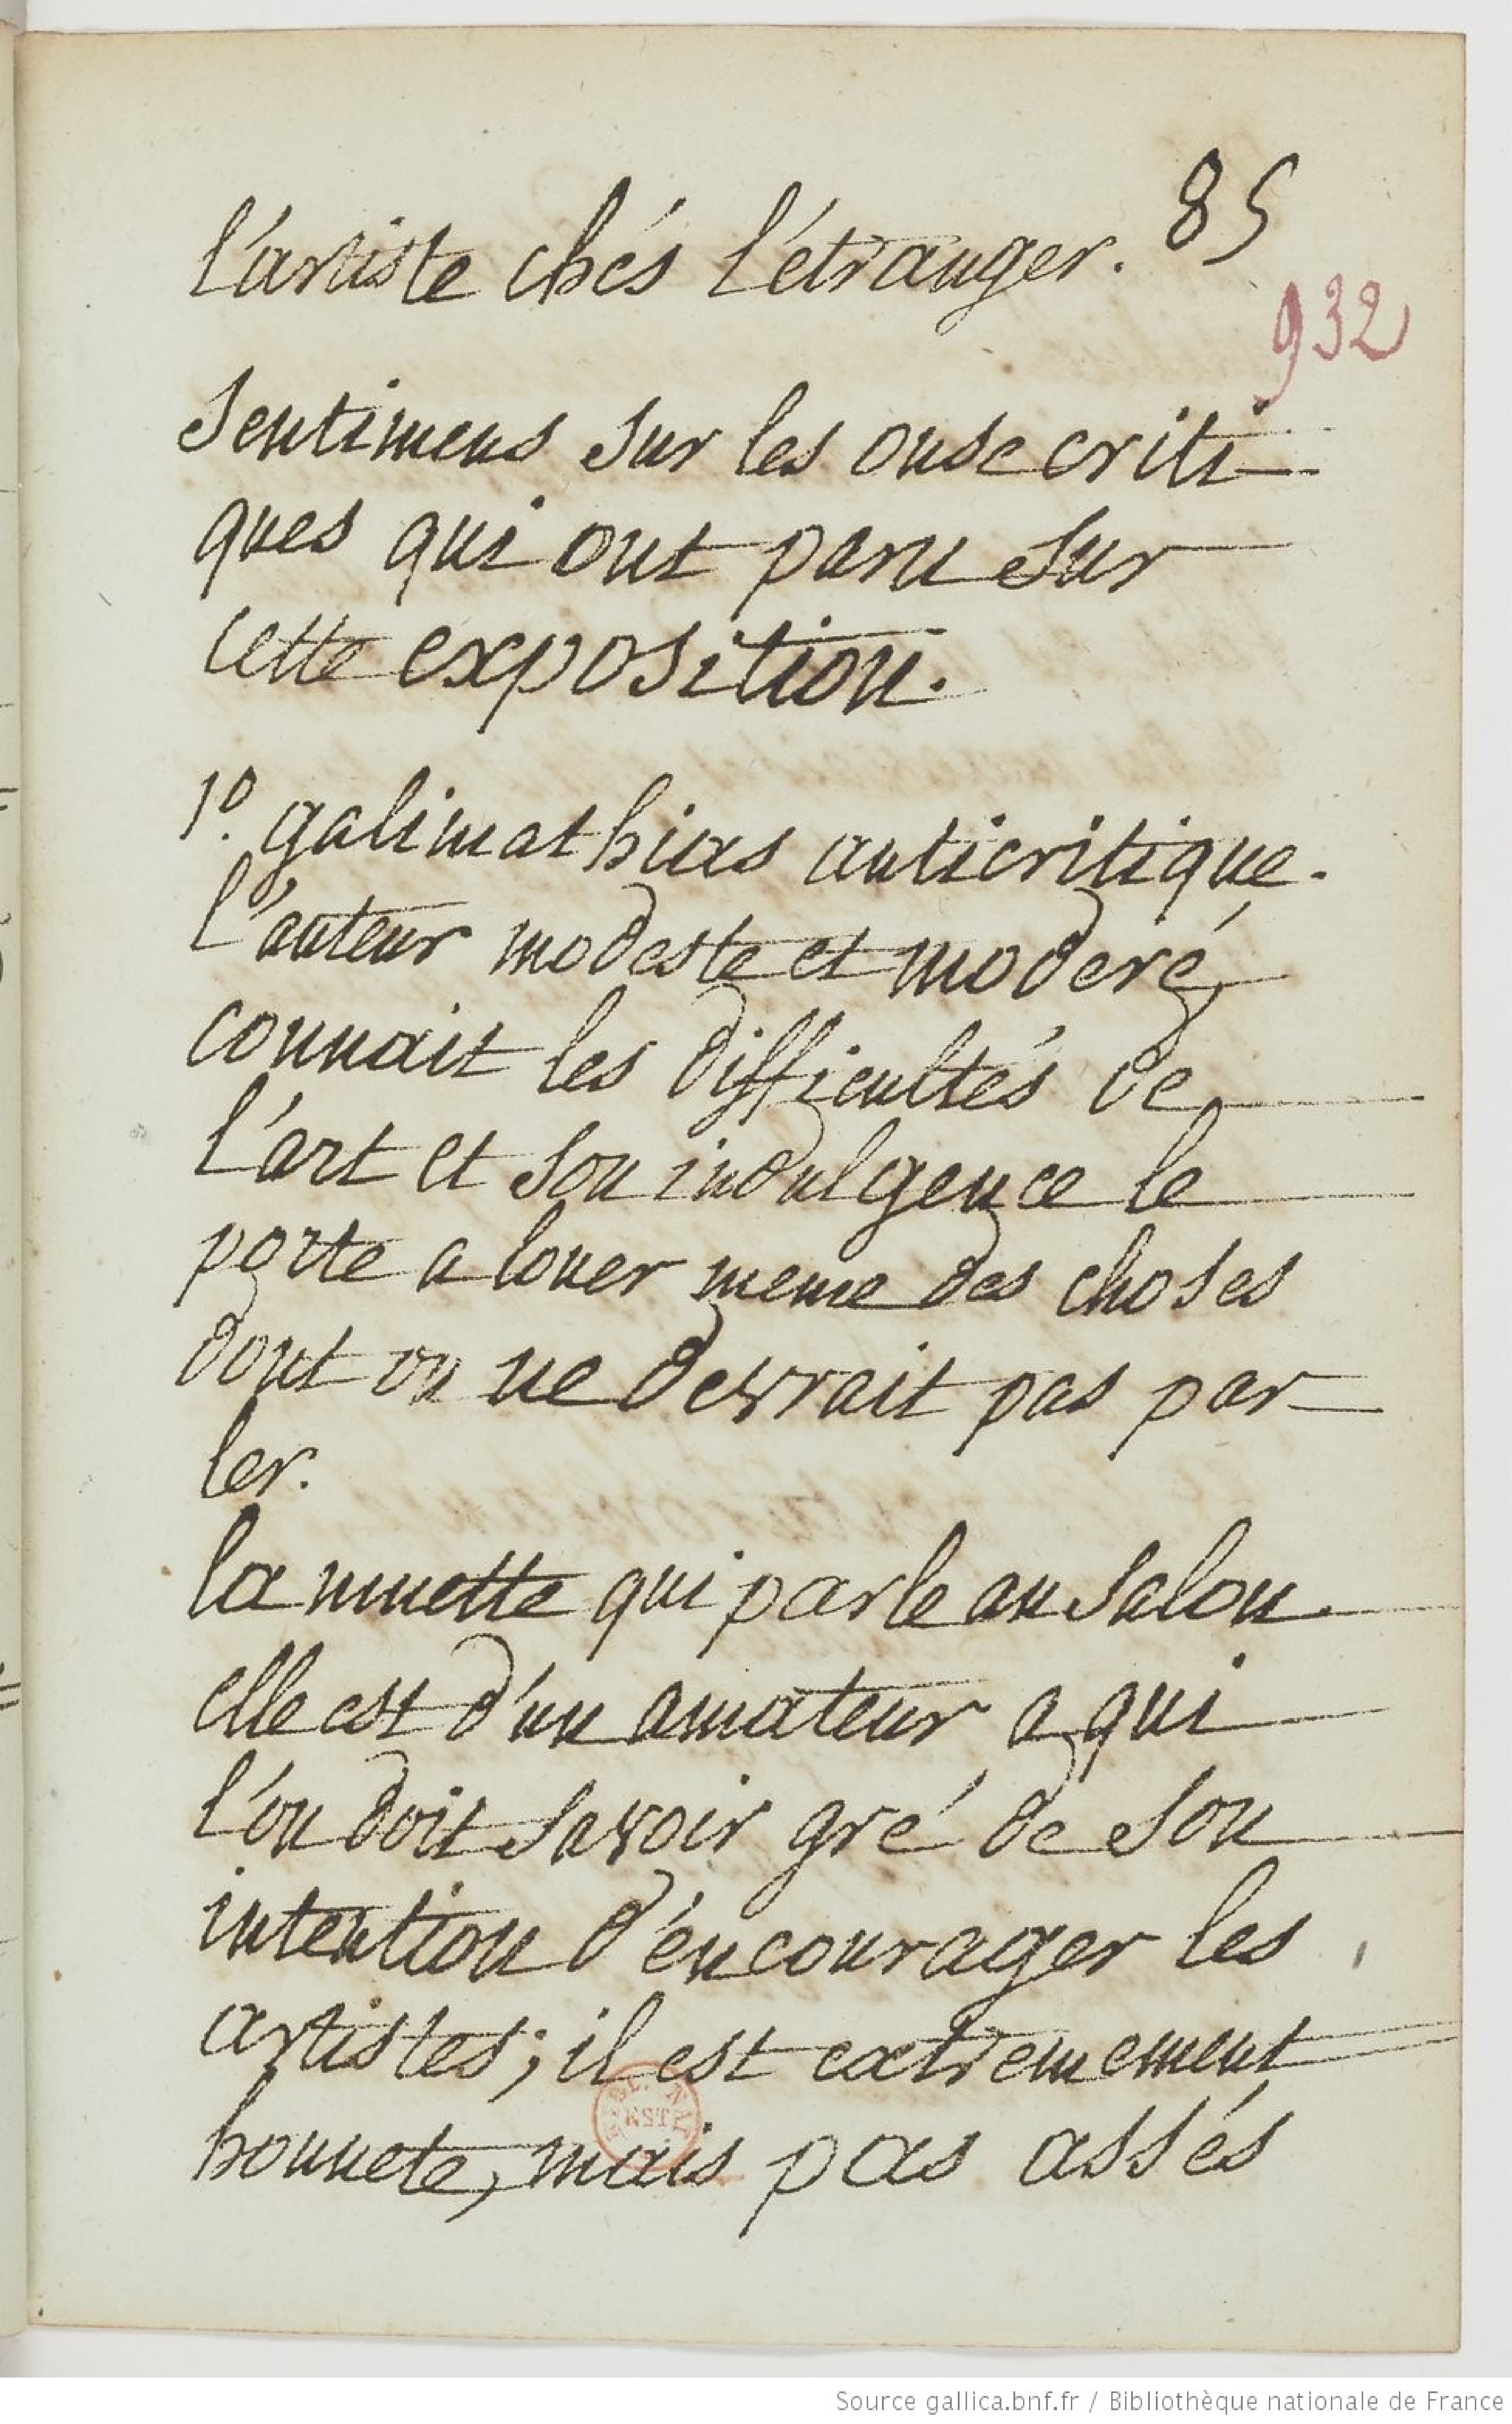 85
l'artiste chés l'étranger.
932
Sentimens sur les onse criti
ques qui ont paru sur
cette exposition.
1º. galimathias anticritique.
l'auteur modeste et moderé
connait les difficultés de
l'art et son indulgence le
porte a louer meme des choses
dont on ne devrait pas par
ler.
la muette qui parle au salon.
elle est d'un amateur a qui
l'on doit savoir gré de son
intention d'éncourager les
artistes; il est extremement
honnete, mais pas assés
EST
Source gallica.bnf.fr / Bibliothèque nationale de France